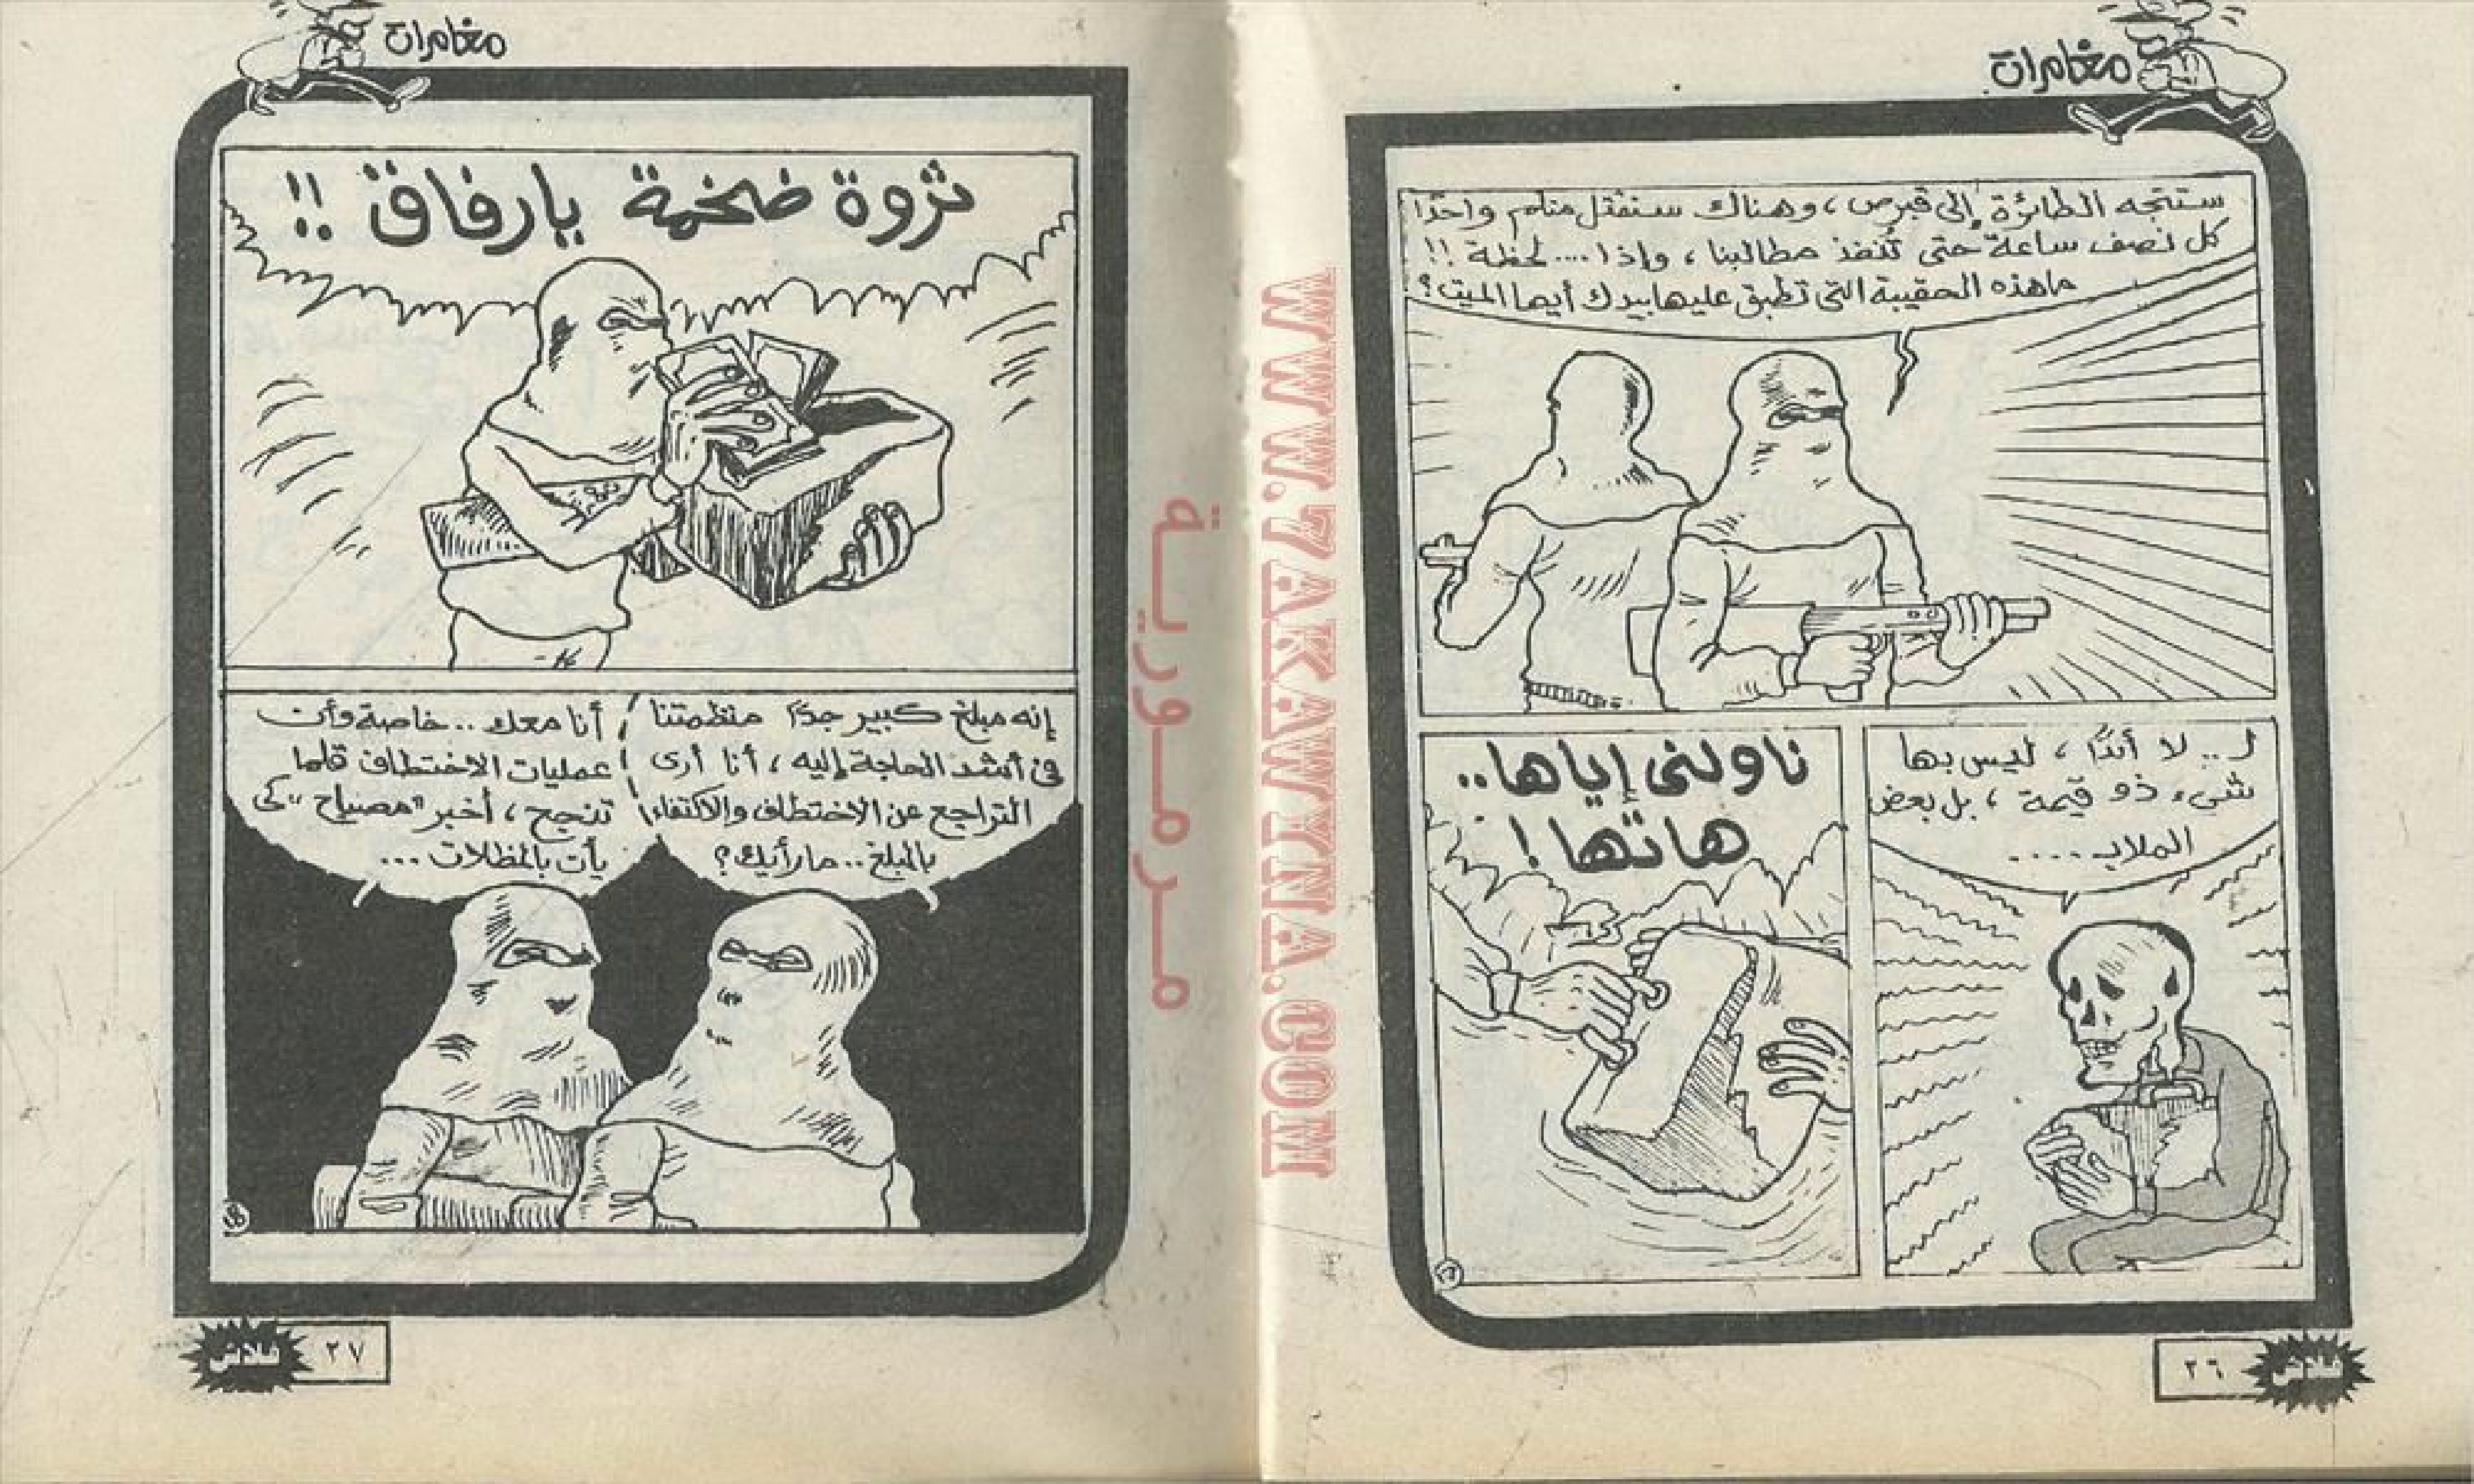 مغامرات
ستتجه الطائرة إلى قبرص، وهناك سنقتل منكم واحدًا
كل نصف ساعة حتى تُنفذ مطالبنا، وإذا.... لحظة !!
ما هذه الحقيبة التى تطبق عليها بيدك أيها الميت؟
لـ .. لا أبدًا، ليس بها
شىء ذو قيمة، بل بعض
الملابـ ....
ناولنى إياها..
هاتها !
٢٦
فلاش
مغامرات
ثروة ضخمة يارفاق !!
إنه مبلغ كبير جدًا منظمتنا
فى أشد الحاجة إليه، أنا أرى
التراجع عن الاختطاف والاكتفاء
بالمبلغ.. مارأيك؟
أنا معك.. خاصة وأن
عمليات الاختطاف قلما
تنجح، أخبر "مصباح" كى
يأت بالمظلات ...
٢٧
فلاش
مرمورية
WWW.7AKAWYNA.COM